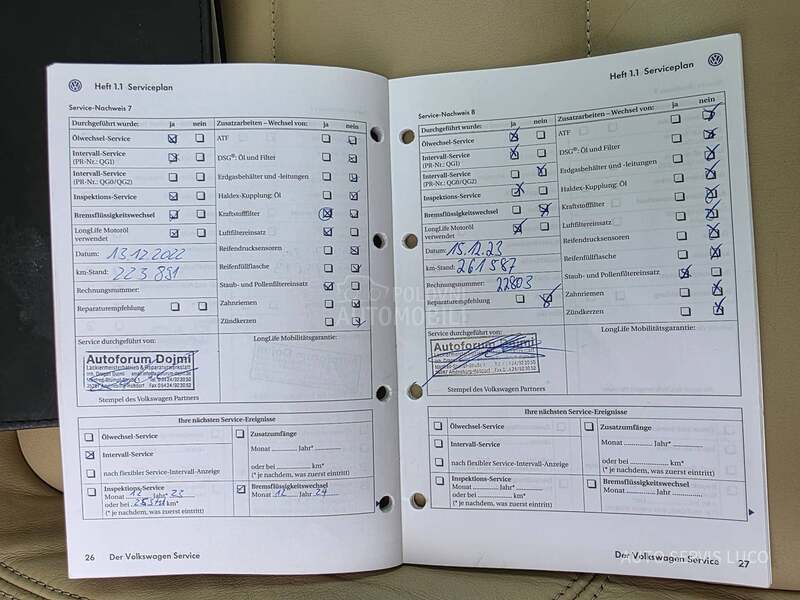 Heft 1.1 Serviceplan
Service-Nachweis 7
Durchgeführt wurde: ja nein Zusatzarbeiten – Wechsel von: ja nein
Ölwechsel-Service
ATF
Intervall-Service
(PR-Nr.: QG1)
DSG®: Öl und Filter
Intervall-Service
(PR-Nr.: QG0/QG2)
Erdgasbehälter und -leitungen
Inspektions-Service
Haldex-Kupplung: Öl
Bremsflüssigkeitswechsel
Kraftstofffilter
LongLife Motoröl
verwendet
Luftfiltereinsatz
Datum: 13.12.2022
Reifendrucksensoren
km-Stand: 223 891
Reifenfüllflasche
Rechnungsnummer:
Staub- und Pollenfiltereinsatz
Zahnriemen
Reparaturempfehlung
Zündkerzen
Service durchgeführt von:
LongLife Mobilitätsgarantie:
Autoforum Dojmi
Lackiermeisterbetrieb & Reparaturwerkstatt
Stempel des Volkswagen Partners
Ihre nächsten Service-Ereignisse
Ölwechsel-Service
Intervall-Service
nach flexibler Service-Intervall-Anzeige
Inspektions-Service
Monat 12 Jahr* 23
oder bei km*
(* je nachdem, was zuerst eintritt)
Zusatzumfänge
Monat Jahr*
oder bei km*
(* je nachdem, was zuerst eintritt)
Bremsflüssigkeitswechsel
Monat 12 Jahr 24
26 Der Volkswagen Service
Heft 1.1 Serviceplan
Service-Nachweis 8
Durchgeführt wurde: ja nein Zusatzarbeiten – Wechsel von: ja nein
Ölwechsel-Service
ATF
Intervall-Service
(PR-Nr.: QG1)
DSG®: Öl und Filter
Intervall-Service
(PR-Nr.: QG0/QG2)
Erdgasbehälter und -leitungen
Inspektions-Service
Haldex-Kupplung: Öl
Bremsflüssigkeitswechsel
Kraftstofffilter
LongLife Motoröl
verwendet
Luftfiltereinsatz
Datum: 15.12.23
Reifendrucksensoren
km-Stand: 261 587
Reifenfüllflasche
Rechnungsnummer: 22803
Staub- und Pollenfiltereinsatz
Reparaturempfehlung
Zahnriemen
Zündkerzen
Service durchgeführt von:
LongLife Mobilitätsgarantie:
Autoforum Dojmi
Stempel des Volkswagen Partners
Ihre nächsten Service-Ereignisse
Ölwechsel-Service
Intervall-Service
nach flexibler Service-Intervall-Anzeige
Inspektions-Service
Monat Jahr*
oder bei km*
(* je nachdem, was zuerst eintritt)
Zusatzumfänge
Monat Jahr*
oder bei km*
(* je nachdem, was zuerst eintritt)
Bremsflüssigkeitswechsel
Monat Jahr
Der Volkswagen Service 27
POLOVNI
AUTOMOBILI
AUTO SERVIS LUCO